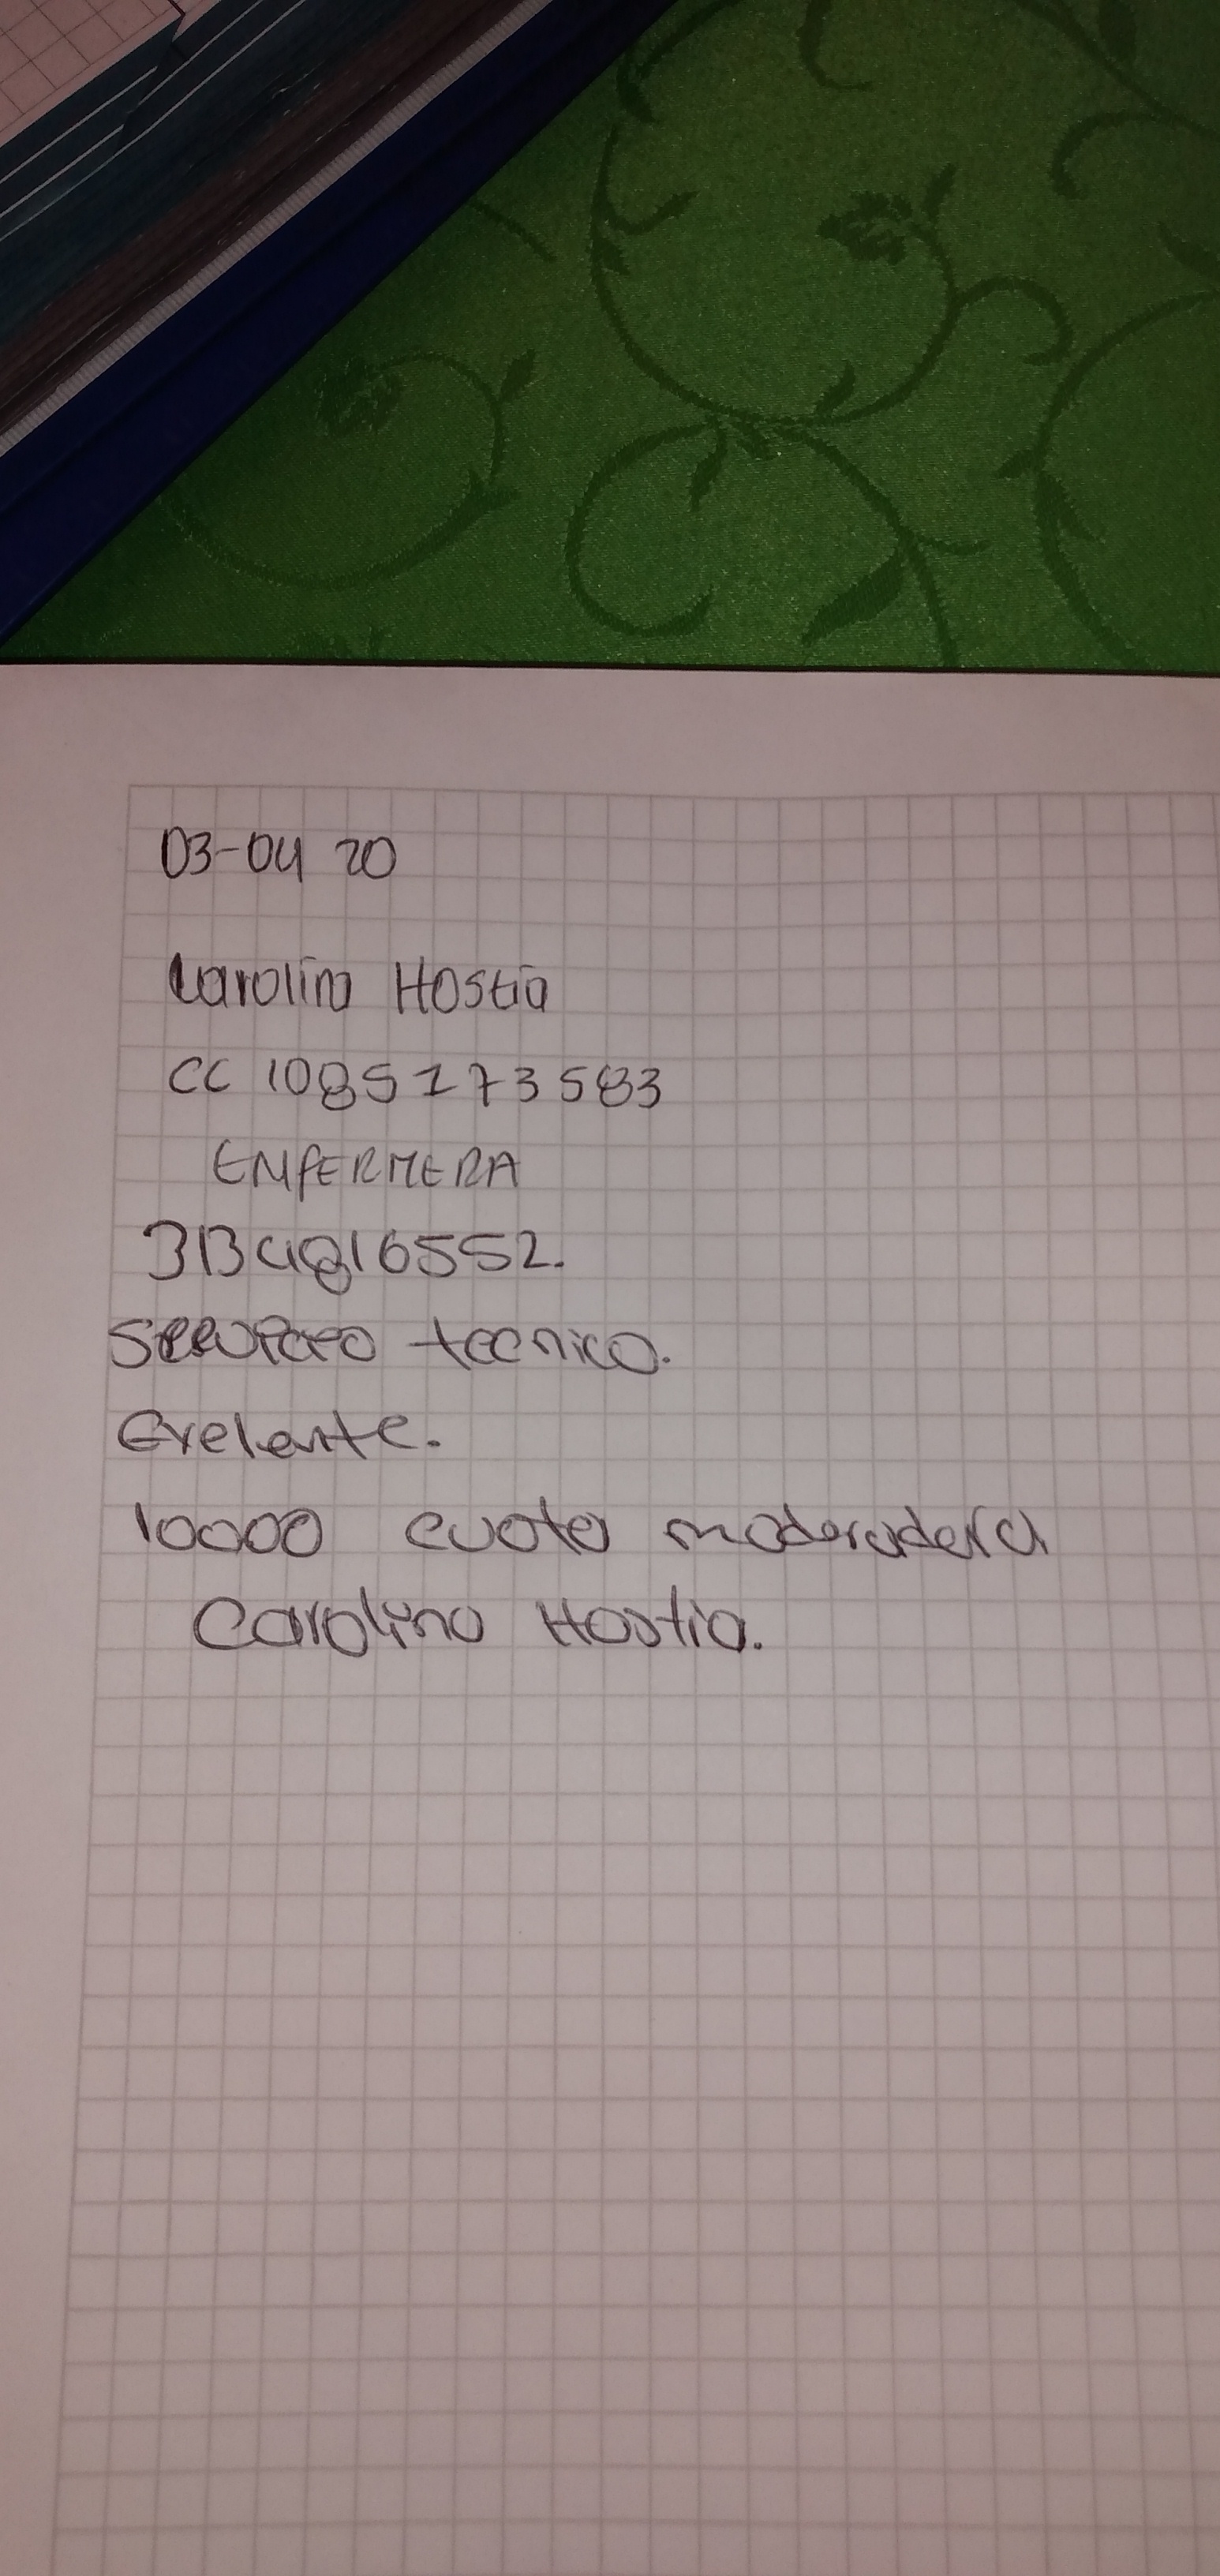 03-04 20
Carolina Hostia
CC 1085173583
ENFERMERA
3134816552.
tecnico.
Exelente.
10000 cuota moderadera
Carolina Hostia.